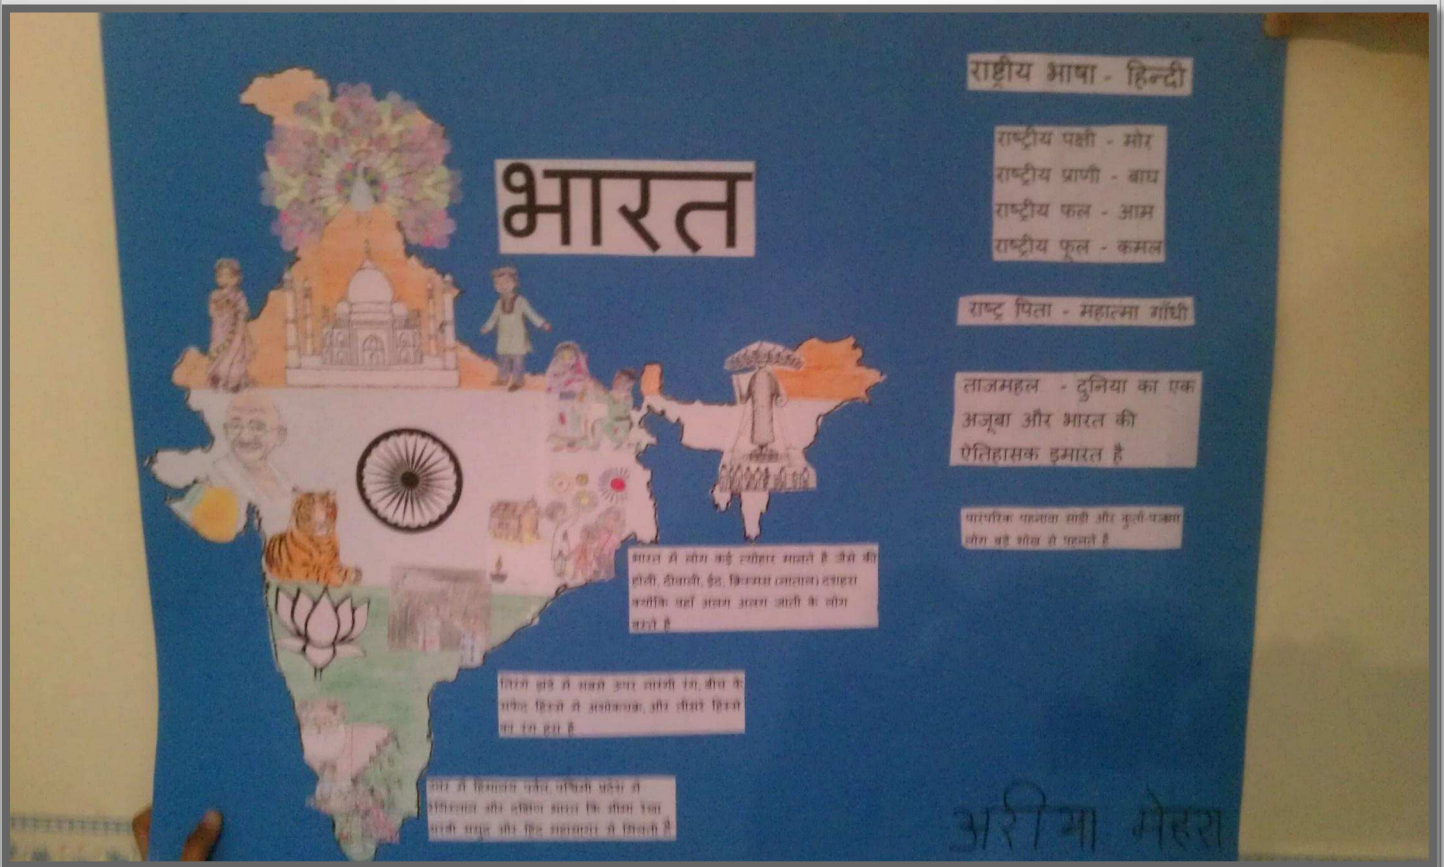 भारत
राष्ट्रीय भाषा - हिन्दी
राष्ट्रीय पक्षी - मोर
राष्ट्रीय प्राणी - बाघ
राष्ट्रीय फल - आम
राष्ट्रीय फूल - कमल
राष्ट्र पिता - महात्मा गाँधी
ताजमहल - दुनिया का एक
अजूबा और भारत की
ऐतिहासक इमारत है
पारंपरिक पहनावा साड़ी और कुर्ता-पजामा
लोग बड़े शोख से पहनते है
भारत में लोग कई त्योहार मानते है जैसे की
होली, दीवाली, ईद, क्रिस्मस (नाताल) दशहरा
क्योंकि यहाँ अलग अलग जाती के लोग
बस्ते है
तिरंगे झंडे में सबसे ऊपर नारंगी रंग, बीच के
सफेद हिस्से में अशोकचक्र, और तीसरे हिस्से
का रंग हरा है
में हिमालय पर्वत, पश्चिमी प्रदेश में
रेगिस्तान और दक्षिण भारत कि सीमा रेखा
अरबी समुद्र और हिंद महासागर से मिलती है
अरीमा मेहरा